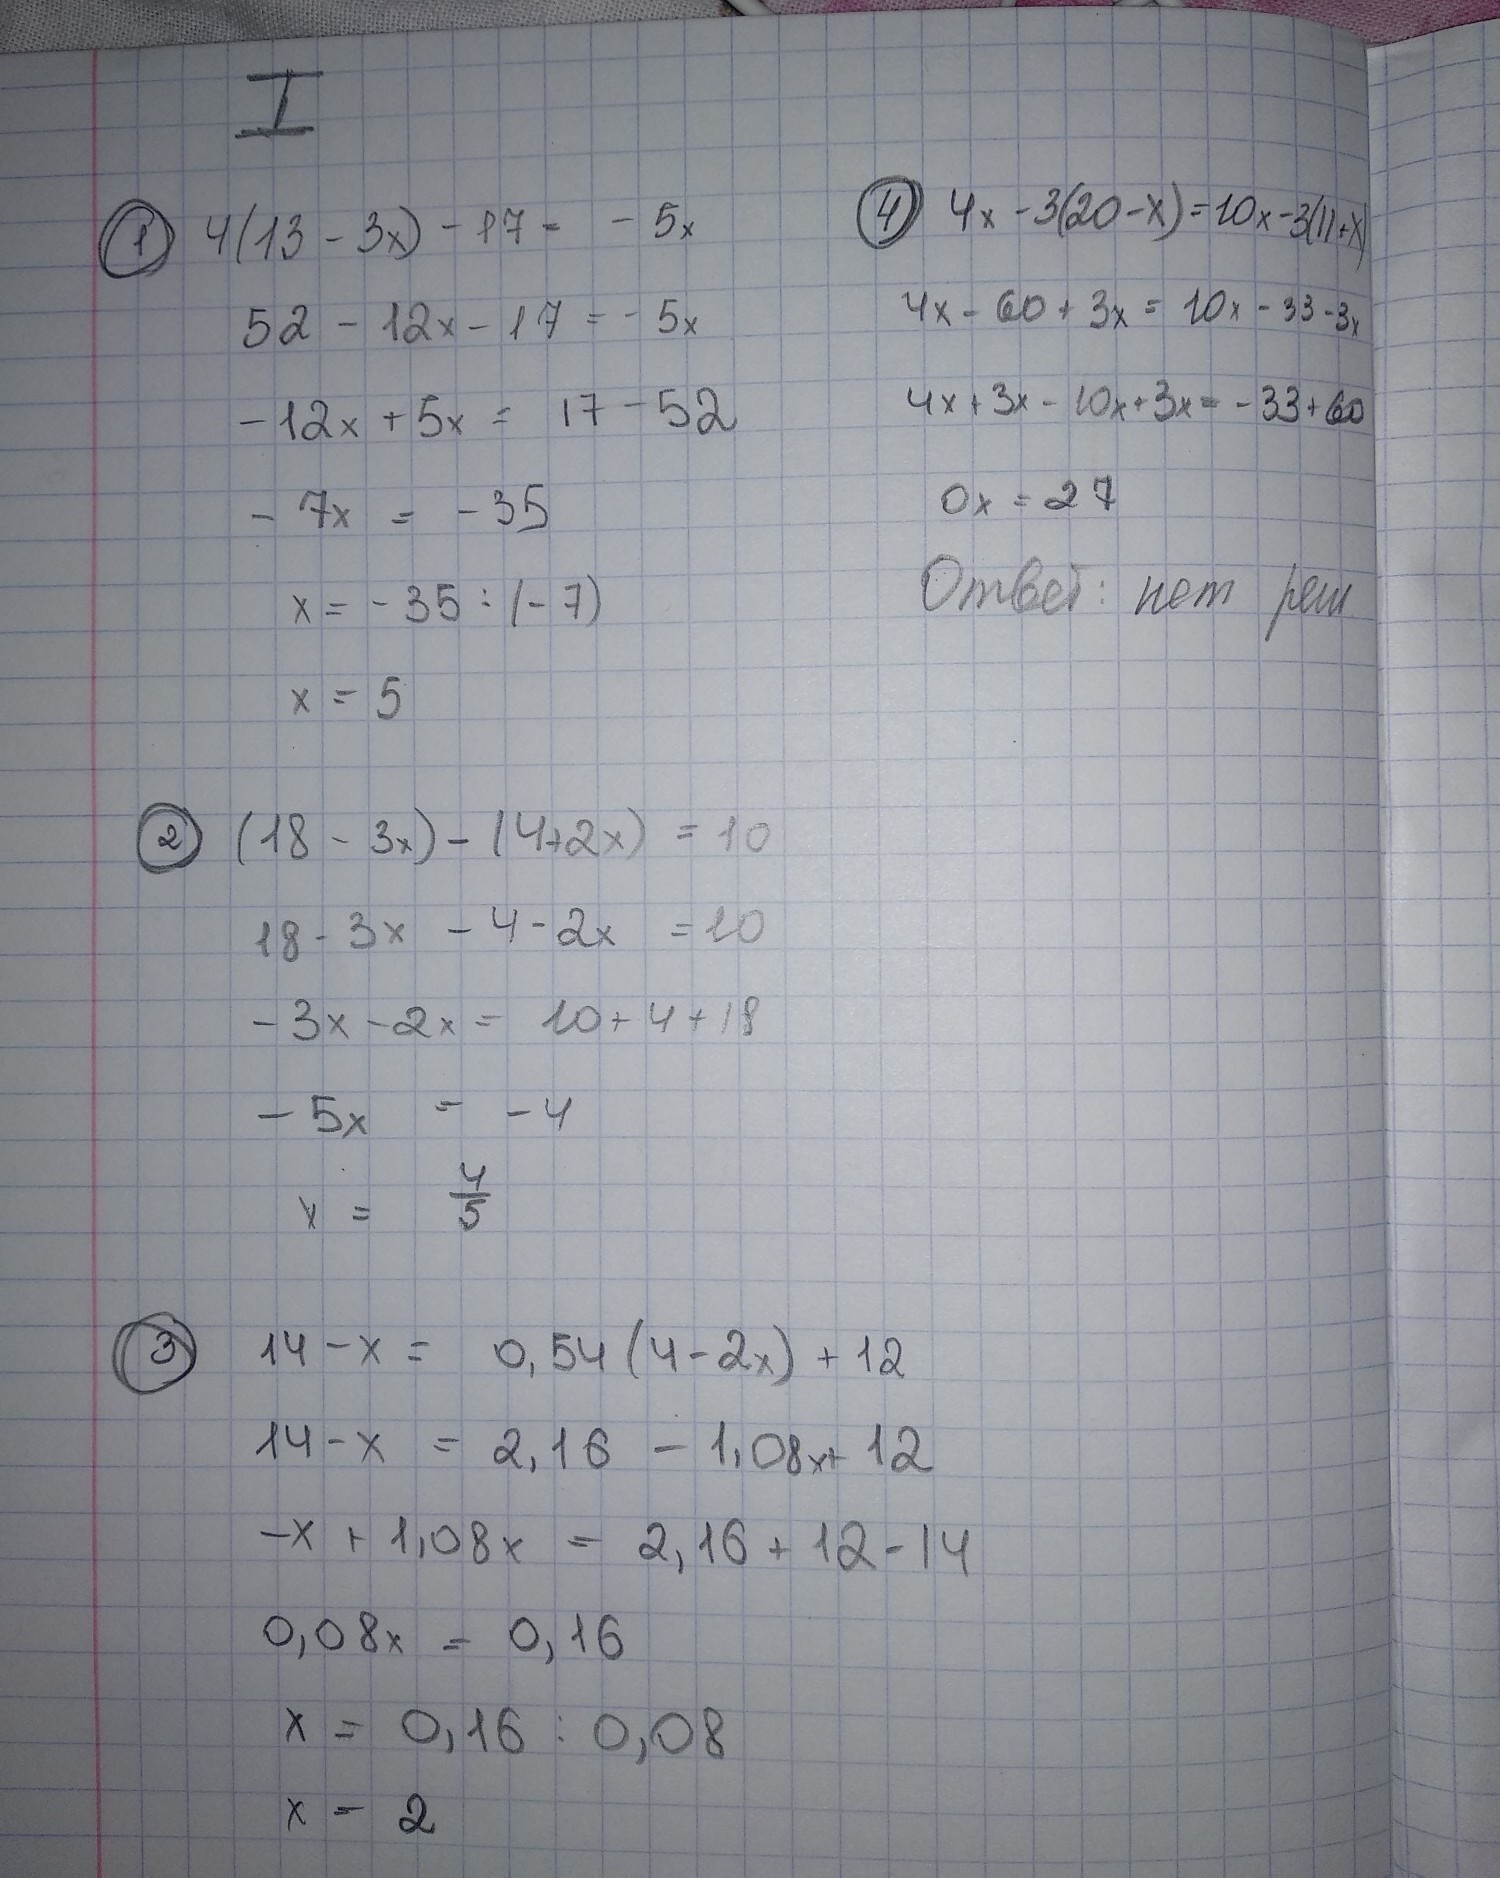 I
① 4(13 - 3x) - 17 = - 5x
52 - 12x - 17 = - 5x
-12x + 5x = 17 - 52
- 7x = - 35
x = - 35 : (- 7)
x = 5
② (18 - 3x) - (4+2x) = 10
18 - 3x - 4 - 2x = 10
- 3x - 2x = 10 + 4 + 18
- 5x = - 4
x = 4/5
③ 14 - x = 0,54 (4 - 2x) + 12
14 - x = 2,16 - 1,08x + 12
-x + 1,08x = 2,16 + 12 - 14
0,08x = 0,16
x = 0,16 : 0,08
x = 2
④ 4x - 3(20 - x) = 10x - 3(11 + x)
4x - 60 + 3x = 10x - 33 - 3x
4x + 3x - 10x + 3x = - 33 + 60
0x = 27
Ответ: нет реш